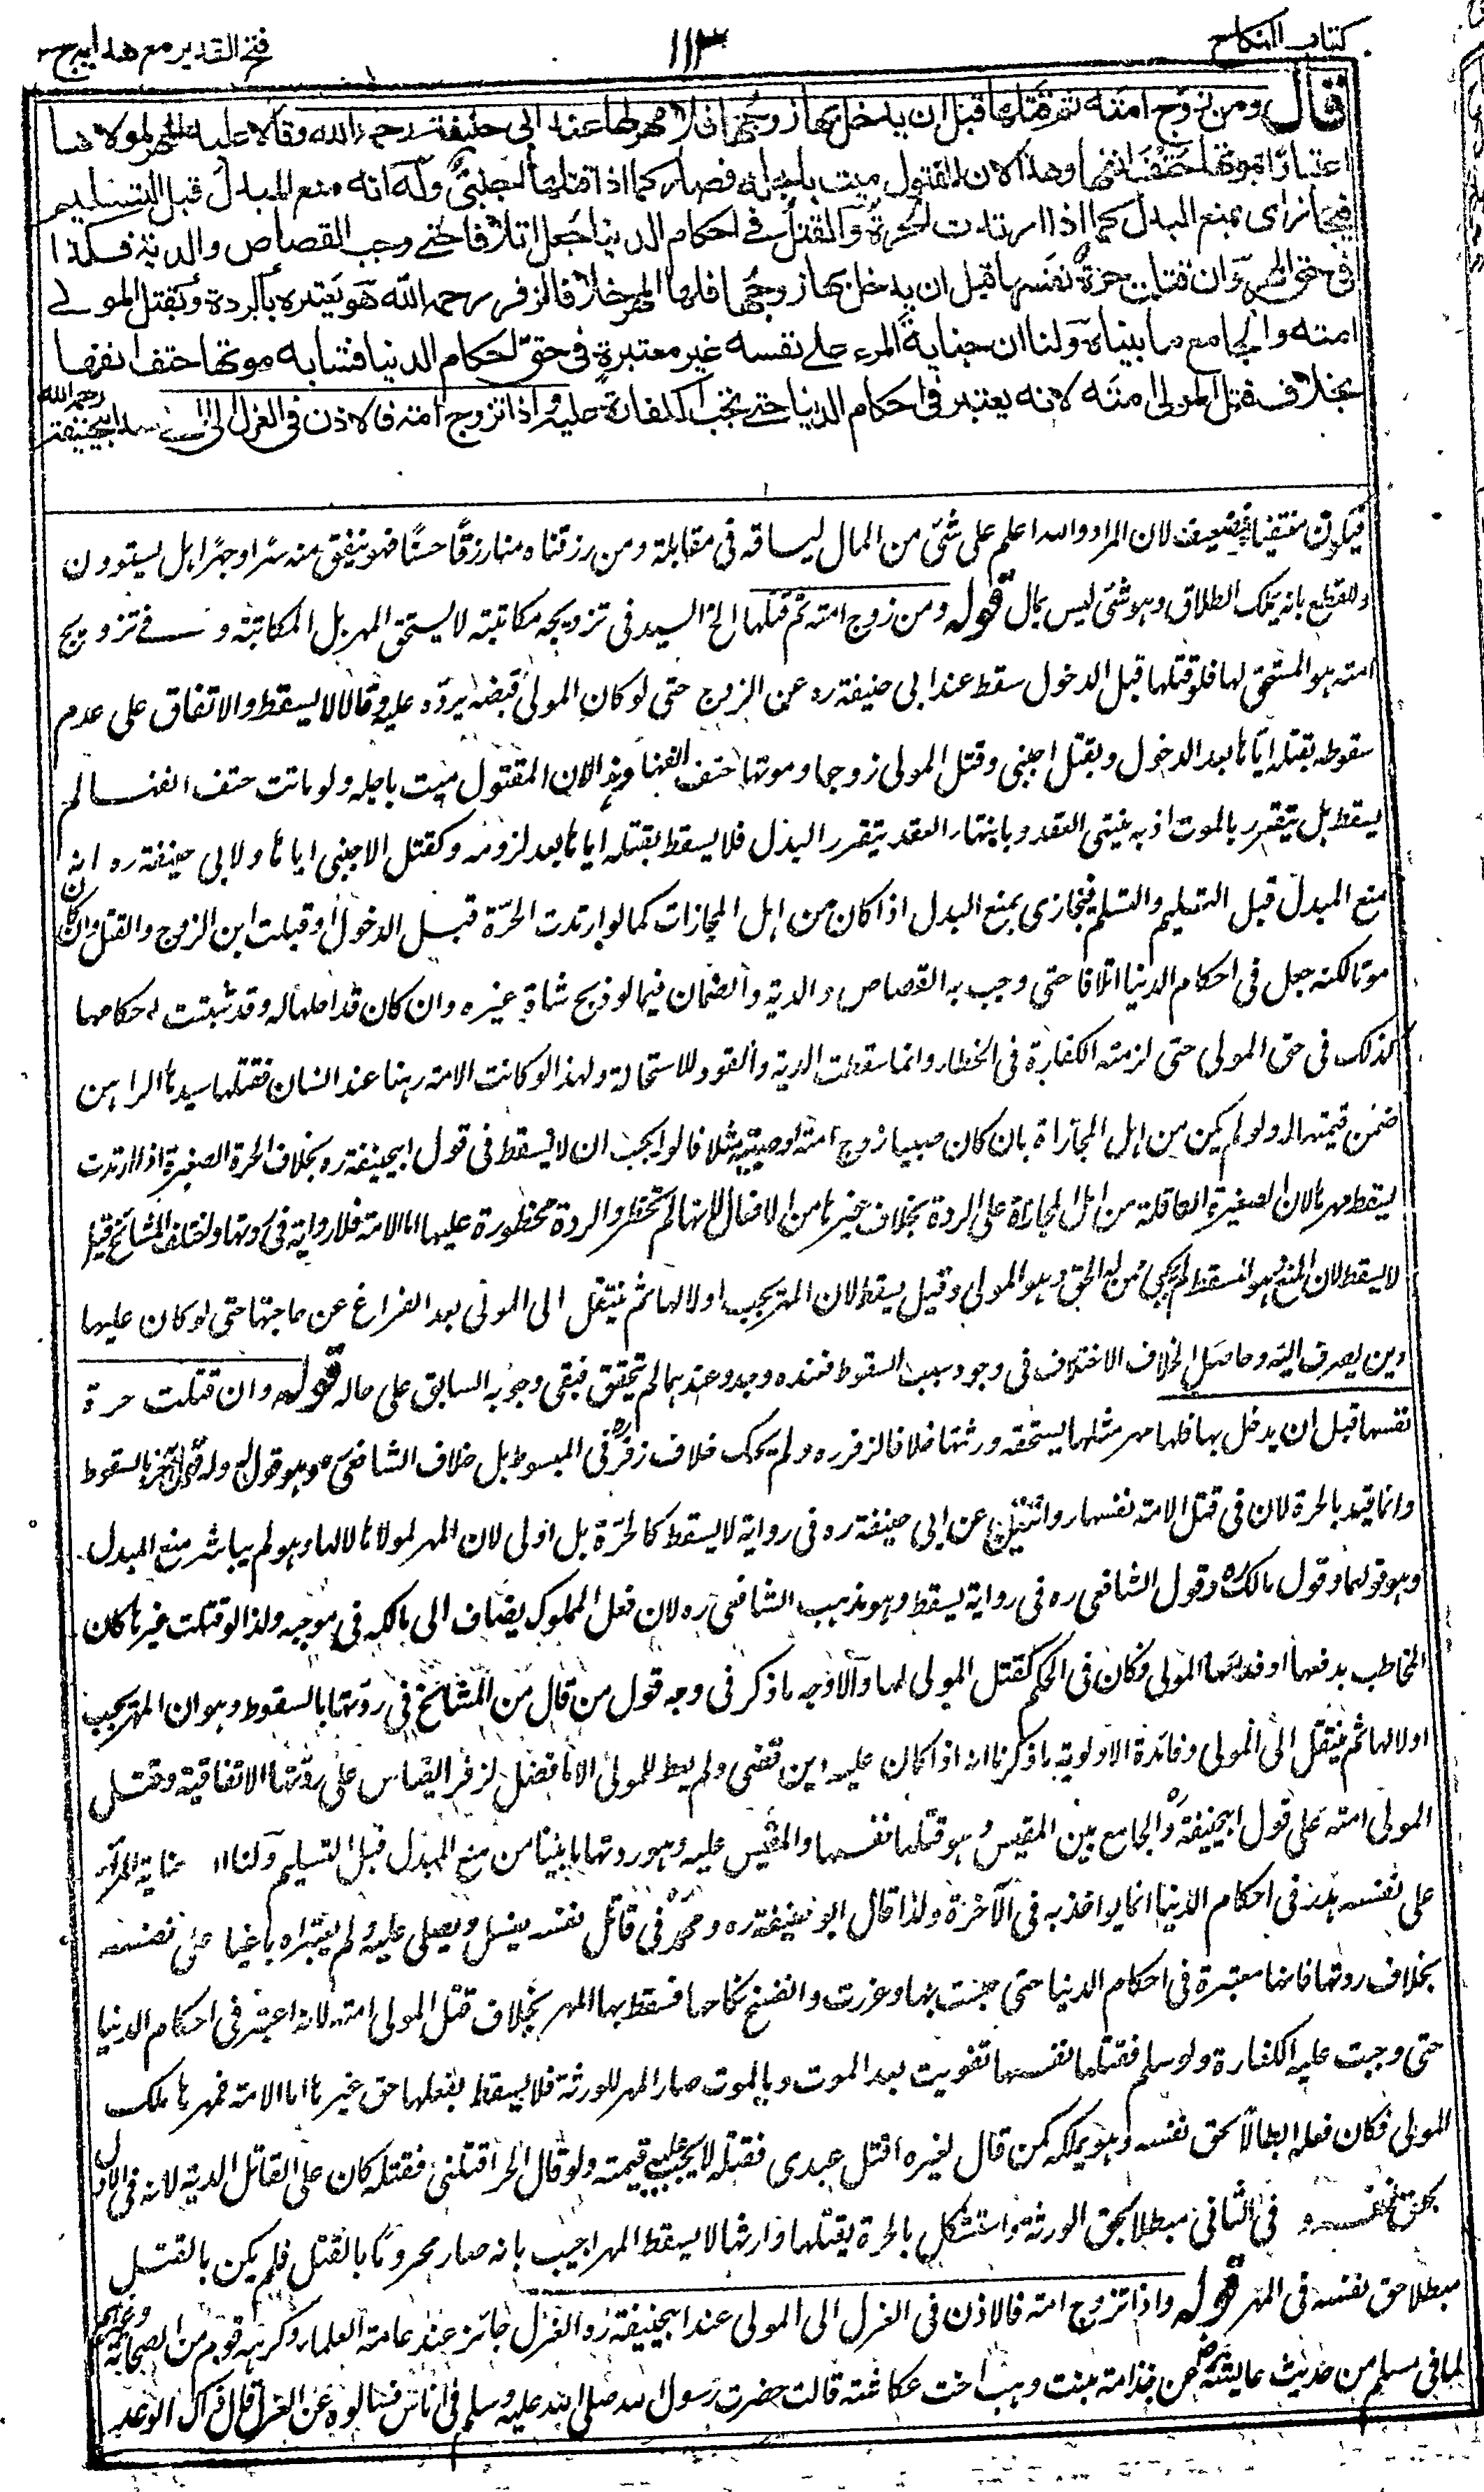 كتاب النكاح
١١٣
فتح القدير مع هدايه ج ٣
قال ومن زوج امته ثم قتلها قبل ان يدخل بها زوجها فلا مهر لها عند ابي حنيفة رحمه الله وقالا عليه المهر لمولاها
اعتبارا بموتها حتف انفها وهذا لان المقتول ميت باجله فصار كما اذا قتلها اجنبي وله انه منع المبدل قبل التسليم
فيجازى بمنع البدل كما اذا ارتدت الحرة والقتل في احكام الدنيا جعل اتلافا حتى وجب القصاص والدية فكذا
في حق المهر وان قتلت حرة نفسها قبل ان يدخل بها زوجها فلها المهر خلافا لزفر رحمه الله هو يعتبره بالردة وبقتل المولى
امته والجامع ما بيناه ولنا ان جناية المرء على نفسه غير معتبرة في حق احكام الدنيا فشابه موتها حتف انفها
بخلاف قتل المولى امته لانه يعتبر في احكام الدنيا حتى تجب الكفارة عليه واذا تزوج امة فالاذن في العزل الى المولى عند ابيحنيفة رحمه الله
فيكون منتفيا فضعيف لان المراد والله اعلم على شئ من المال لمساقه في مقابلة ومن رزقناه منا رزقا حسنا فهو ينفق منه سرا وجهرا هل يستوون
وللقطع بانه يملك الطلاق وهو شئ ليس بمال قوله ومن زوج امته ثم قتلها الخ السيد في تزويجه مكاتبته لا يستحق المهر بل المكاتبة و في تزويج
امته هو المستحق لها فلو قتلها قبل الدخول سقط عند ابي حنيفة ره عن الزوج حتى لو كان المولى قبضه يرده عليه وقالا لا يسقط والاتفاق على عدم
سقوطه بقتله اياها بعد الدخول وبقتل اجنبي وقتل المولى زوجها وموتها حتف انفها وهذا لان المقتول ميت باجله ولو ماتت حتف انفها لم
يسقط بل يتقرر بالموت اذ به ينتهي العقد وبانتهاء العقد يتقرر البدل فلا يسقط بقتله اياها بعد لزومه وكقتل الاجنبي اياها ولابي حنيفة ره انه
منع المبدل قبل التسليم والتسلم فيجازى بمنع البدل اذا كان من اهل المجازات كما لو ارتدت الحرة قبل الدخول او قبلت ابن الزوج والقتل وان كان
موتا لكنه جعل في احكام الدنيا اتلافا حتى وجب به القصاص والدية والضمان فيما لو ذبح شاة غيره وان كان قد احلها له وقد ثبتت احكامها
كذلك في حق المولى حتى لزمته الكفارة في الخطأ وانما سقطت الدية والقود للاستحالة ولهذا لو كانت الامة رهنا عند انسان فقتلها سيدها الراهن
ضمن قيمتها له ولو لم يكن من اهل المجازاة بان كان صبيا زوج امته وصيه مثلا قالوا يجب ان لا يسقط في قول ابيحنيفة ره بخلاف الحرة الصغيرة اذا ارتدت
يسقط مهرها لان الصغيرة العاقلة من اهل المجازاة على الردة بخلاف غيرها من الافعال لانها لم تحظر والردة محظورة عليها اما الامة فلا رواية في ردتها واختلف المشائخ قيل
لا يسقط لان المنع وهو المسقط لم يجئ ممن له الحق وهو المولى وقيل يسقط لان المهر يجب اولا لها ثم ينتقل الى المولى بعد الفراغ عن حاجتها حتى لو كان عليها
دين يصرف اليه وحاصل الخلاف الاختلاف في وجود سبب السقوط فعنده وجد وعندهما لم يتحقق فبقي وجوبه السابق على حاله قوله وان قتلت حرة
نفسها قبل ان يدخل بها فلها مهر مثلها يستحقه ورثتها خلافا لزفر ره ولم يحك خلاف زفر ره في المبسوط بل خلاف الشافعي وهو قول له وله قول آخر بالسقوط
وانما قيد بالحرة لان في قتل الامة نفسها روايتين عن ابي حنيفة ره في رواية لا يسقط كالحرة بل اولى لان المهر لمولاها لا لها وهو لم يباشر منع المبدل
وهو قولهما وقول مالك ره وقول الشافعي ره في رواية يسقط وهو مذهب الشافعي ره لان فعل المملوك يضاف الى مالكه في موجبه ولذا لو قتلت غيرها كان
المخاطب بدفعها او فدائها المولى فكان في الحكم كقتل المولى لها والاوجه ما ذكر في وجه قول من قال من المشائخ في ردتها بالسقوط وهو ان المهر يجب
اولا لها ثم ينتقل الى المولى وفائدة الاولوية ما ذكرنا انه اذا كان عليه دين قضي ولم يعط للمولى الا ما فضل لزفر القياس على ردتها الاتفاقية وقتل
المولى امته على قول ابيحنيفة ره والجامع بين المقيس وهو قتلها نفسها والمقيس عليه وهو ردتها ما بينا من منع المبدل قبل التسليم ولنا ان جناية المرء
على نفسه هدر في احكام الدنيا انما يواخذ به في الآخرة ولذا قال ابو حنيفة ره ومحمد في قاتل نفسه يغسل ويصلى عليه ولم يعتبراه باغيا على نفسه
بخلاف ردتها فانها معتبرة في احكام الدنيا حتى حبست بها وعزرت وانفسخ نكاحها فسقط بها المهر بخلاف قتل المولى امته لانه اعتبر في احكام الدنيا
حتى وجبت عليه الكفارة ولو سلم فقتلها نفسها تفويت بعد الموت وبالموت صار المهر للورثة فلا يسقط بفعلها حق غيرها اما الامة فمهرها ملك
المولى فكان فعله ابطالا لحق نفسه وهو يملكه كمن قال لغيره اقتل عبدي فقتله لا يجب عليه قيمته ولو قال الحر اقتلني فقتله كان على القاتل الدية لانه في الاول
بحق نفسه و في الثاني مبطلا بحق الورثة واستشكل بالحرة يقتلها وارثها لا يسقط المهر اجيب بانه صار محروما بالقتل فلم يكن بالقتل
مبطلا حق نفسه في المهر قوله واذا تزوج امة فالاذن في العزل الى المولى عند ابيحنيفة ره العزل جائز عند عامة العلماء وكرهه قوم من الصحابة وغيرهم
لما في مسلم من حديث عايشة رض عن جذامة بنت وهب اخت عكاشة قالت حضرت رسول الله صلى الله عليه وسلم في اناس فسالوه عن العزل قال ذاك الوءد